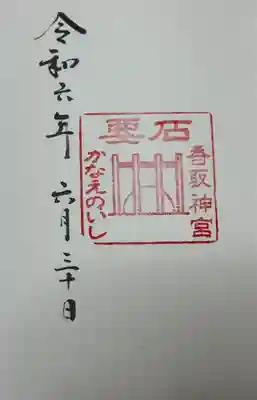 令和六年 六月三十日
要石
香取神宮
かなえのいし